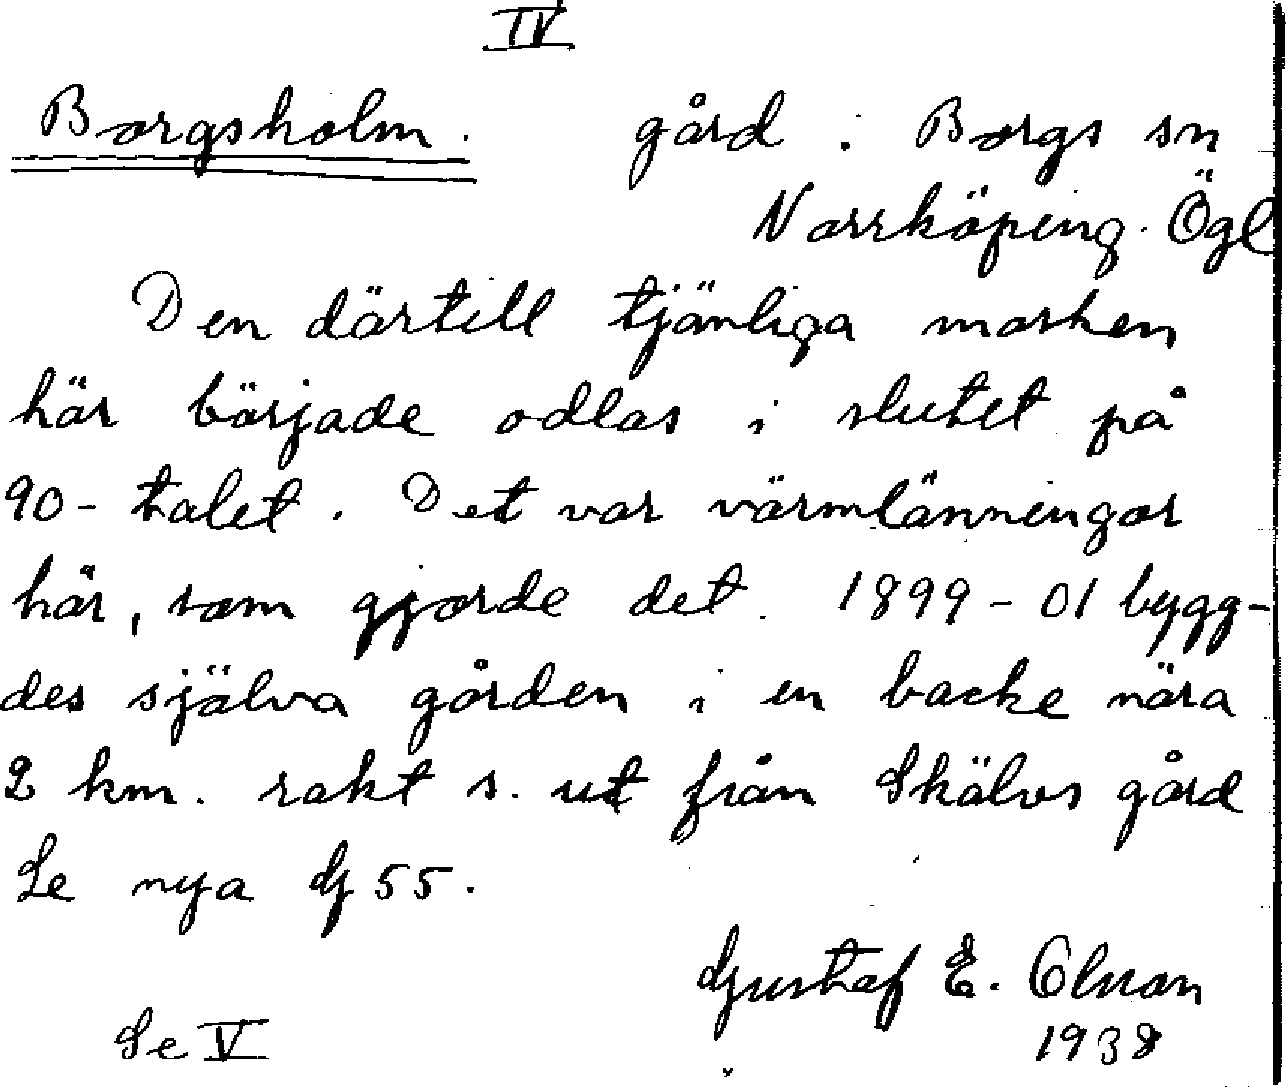 IV
Borgsholm. gård. Borgs sn
Norrköping. Ögl
Den därtill tjänliga marken
här började odlas i slutet på
90-talet. Det var värmlänningar
här, som gjorde det. 1899-01 bygg-
des själva gården i en backe nära
2 km. rakt s. ut från Skälvs gård
Se nya G 55.
Gustaf E. Olson
1938
Se V